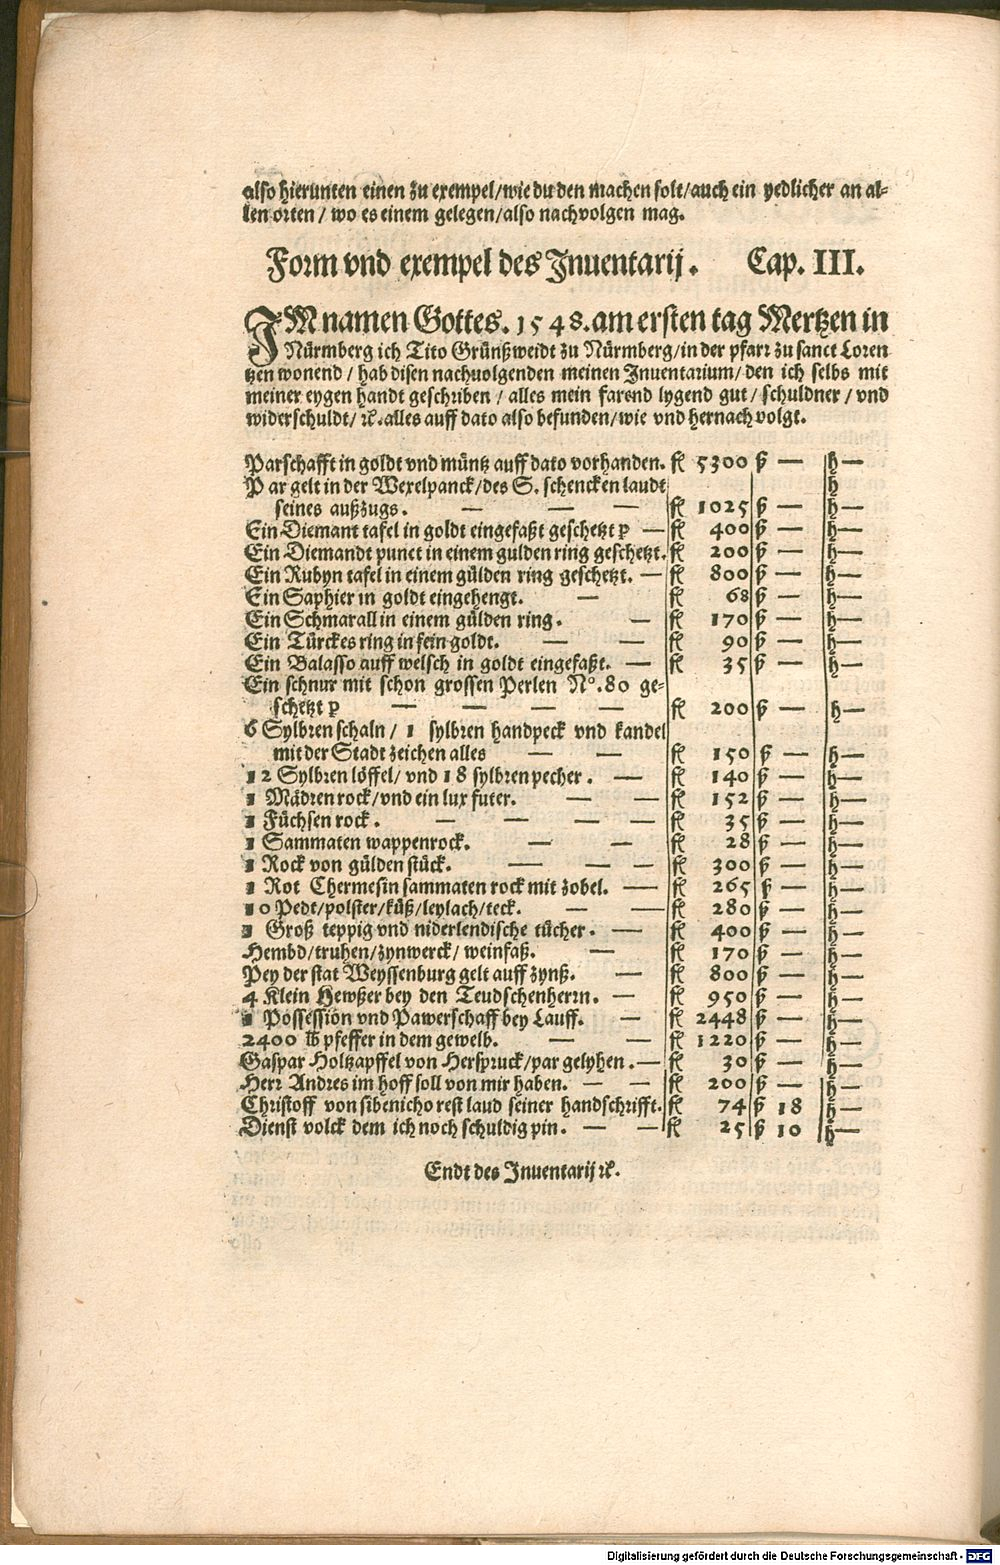 also hierunten einen zu exempel/wie du den machen solt/auch ein yedlicher an al-
len orten / wo es einem gelegen/also nachvolgen mag.
Form vnd exempel des Inuentarij. Cap. III.
IM namen Gottes. 1548. am ersten tag Mertzen in
Nürmberg ich Tito Grünßweidt zu Nürmberg/in der pfarr zu sanct Loren
tzen wonend / hab disen nachuolgenden meinen Inuentarium/ den ich selbs mit
meiner eygen handt geschriben / alles mein farend lygend gut / schuldner / vnd
widerschuldt/ ꝛc. alles auff dato also befunden/wie vnd hernach volgt.
Parschafft in goldt vnd müntz auff dato vorhanden. fl 5300 ß — h—
Par gelt in der Wexelpanck/des S. schencken laudt h
seines außzugs. — — — fl 1025 ß — h—
Ein Diemant tafel in goldt eingefaßt geschetzt p — fl 400 ß — h—
Ein Diemandt punct in einem gulden ring geschetzt. fl 200 ß — h—
Ein Rubyn tafel in einem gülden ring geschetzt. — fl 800 ß — h—
Ein Saphier in goldt eingehengt. — fl 68 ß — h—
Ein Schmarall in einem gülden ring. — fl 170 ß — h—
Ein Türckes ring in fein goldt. — — fl 90 ß — h—
Ein Balasso auff welsch in goldt eingefaßt. — fl 35 ß — h—
Ein schnur mit schon grossen Perlen N°. 80 ge-
schetzt p — — — — fl 200 ß — h—
6 Sylbren schaln / 1 sylbren handpeck vnd kandel
mit der Stadt zeichen alles — — fl 150 ß — h—
12 Sylbren löffel/ vnd 18 sylbren pecher. — fl 140 ß — h—
1 Mädren rock/vnd ein lux futer. — — fl 152 ß — h—
1 Füchsen rock. — — — — fl 35 ß — h—
1 Sammaten wappenrock. — — fl 28 ß — h—
1 Rock von gülden stück. — — — fl 300 ß — h—
1 Rot Chermesin sammaten rock mit zobel. — fl 265 ß — h—
10 Pedt/polster/küß/leylach/teck. — — fl 280 ß — h—
Groß teppig vnd niderlendische tücher. — fl 400 ß — h—
Hembd/truhen/zynwerck/ weinfaß. — fl 170 ß — h—
Pey der stat Weyssenburg gelt auff zynß. — fl 800 ß — h—
4 Klein Hewßer bey den Teudschenherrn. — fl 950 ß — h—
1 Possession vnd Pawerschaff bey Lauff. — fl 2448 ß — h—
2400 lb pfeffer in dem gewelb. — — fl 1220 ß — h—
Gaspar Holtzapffel von Herspruck/par gelyhen. — fl 30 ß — h—
Herr Andres im hoff soll von mir haben. — — fl 200 ß — h—
Christoff von sibenicho rest laud seiner handschrifft. fl 74 ß 18 h—
Dienst volck dem ich noch schuldig pin. — — fl 25 ß 10 h—
Endt des Inuentarij ꝛc.
Digitalisierung gefördert durch die Deutsche Forschungsgemeinschaft - DFG